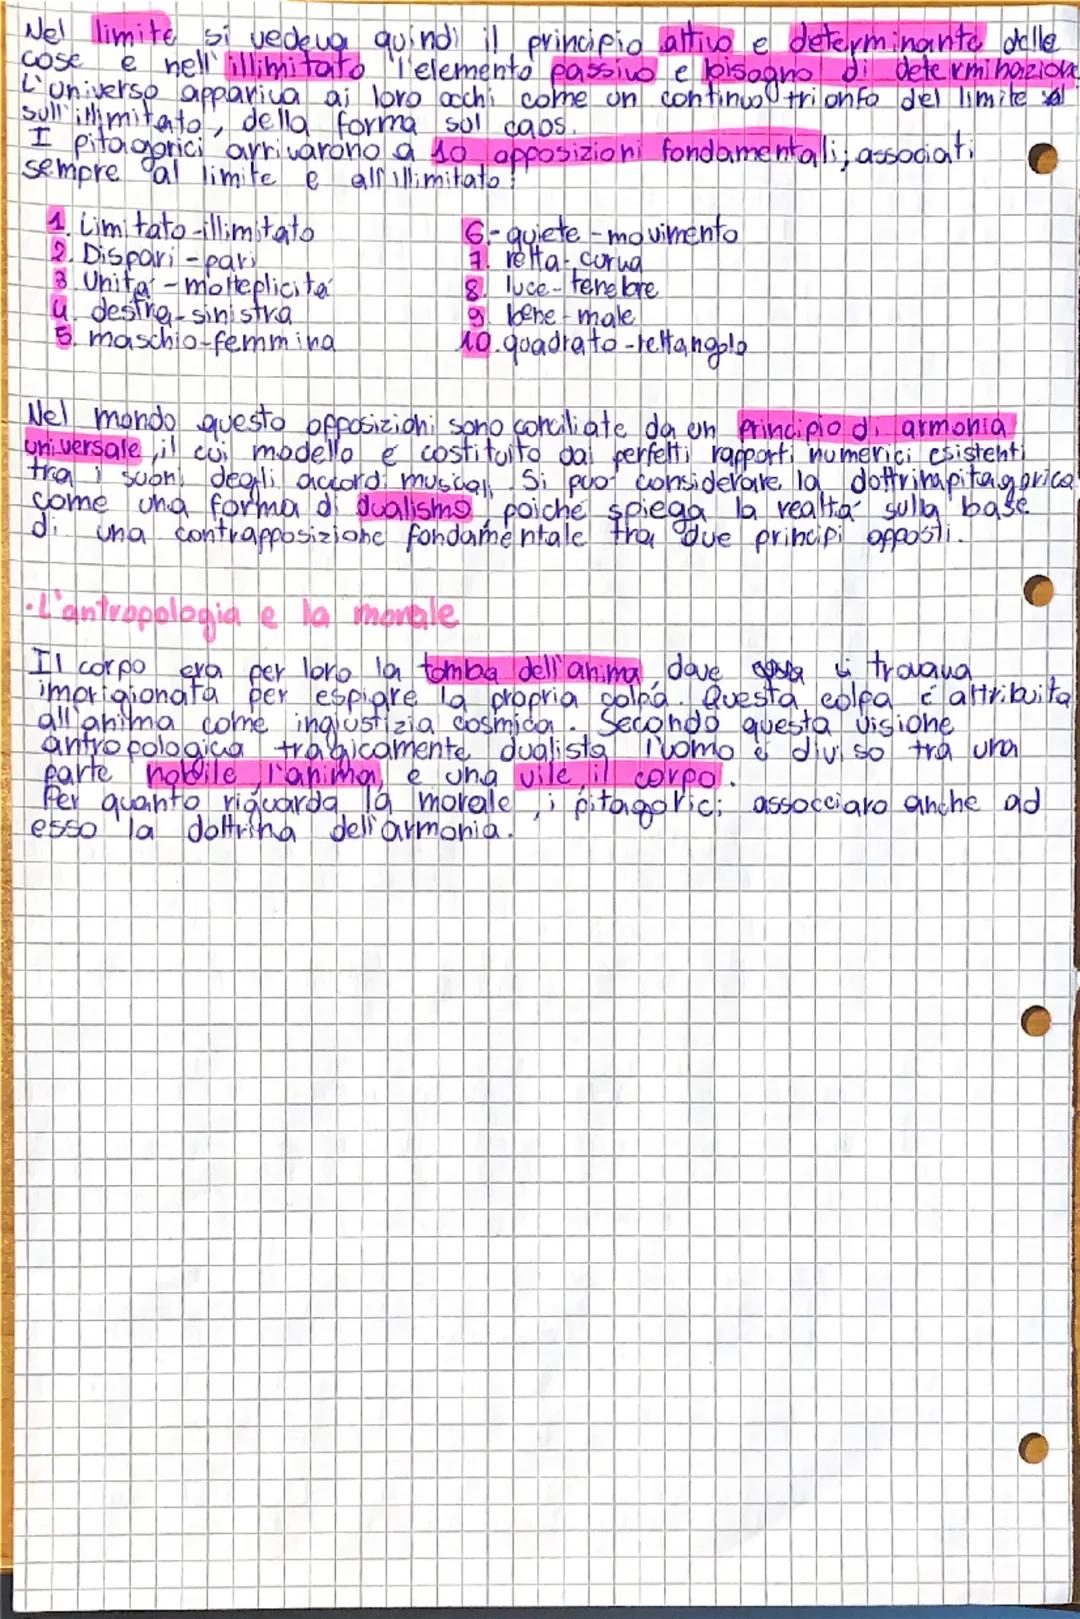 Nel limite si vedeva quindi il principio attivo e determinante delle
cose e nell'illimitato l'elemento passivo e bisogno di determinazione
L'universo appariva ai loro occhi come un continuo trionfo del limite
sull'illimitato, della forma sul caos.
I pitagorici arrivarono a 10 opposizioni fondamentali, associati
sempre al limite e all'illimitato:
1. Limitato-illimitato
2. Dispari - pari
3 Unita' - molteplicita'
4. destra-sinistra
5. maschio-femmina
6.- quiete - movimento
7. retta-curva
8. luce- tenebre
9. bene - male
10. quadrato-rettangolo
Nel mondo questo opposizioni sono conciliate da un principio di armonia
universale, il cui modello e' costituito dai perfetti rapporti numerici esistenti
tra i suoni degli accordi musicali. Si puo' considerare la dottrina pitagorica
come una forma di dualismo, poiche' spiega la realta' sulla base
di una contrapposizione fondamentale tra due principi opposti.
· L'antropologia e la morale
Il corpo era per loro la tomba dell'anima, dove si trovava
imprigionata per espiare la propria colpa. Questa colpa e' attribuita
all'anima come ingiustizia cosmica. Secondo questa visione
antropologica tragicamente dualista l'uomo e' diviso tra una
parte nobile, l'anima, e una vile il corpo.
Per quanto riguarda la morale, i pitagorici assocciaro anche ad
esso la dottrina dell'armonia.